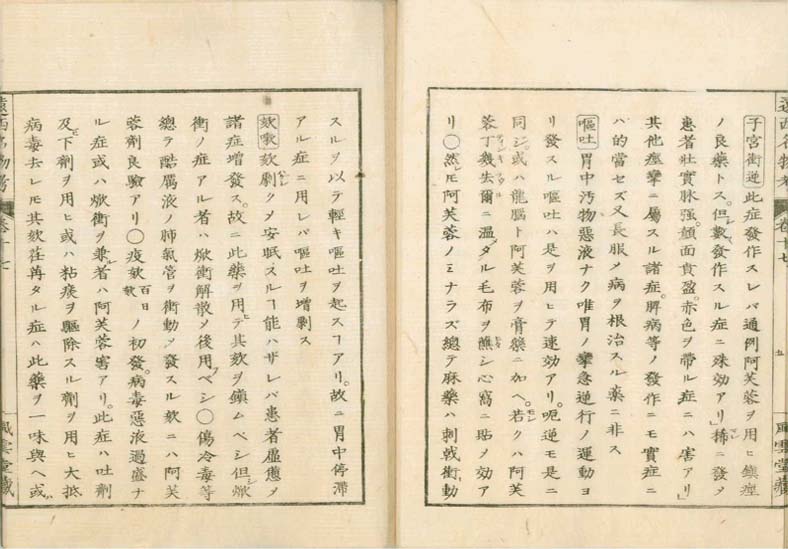 子宮衝逆 此症發作スレバ通例阿芙蓉ヲ用ヒ鎭痙
ノ良藥トス。但數發作スル症ニ殊効アリ」稀ニ發メ
患者壯實脉强。顔面賁盈。赤色ヲ帶ル症ニハ害アリ」
其他痙攣ニ屬スル諸症。脾病等ノ發作ニモ實症ニ
ハ的當セズ又長服メ病ヲ根治スル藥ニ非ス
嘔吐 胃中汚物惡液ナク唯胃ノ攣急逆行ノ運動ヨ
リ發スル嘔吐ハ是ヲ用ヒテ速効アリ。呃逆モ是ニ
同シ。或ハ龍腦ト阿芙蓉ヲ膏藥ニ加ヘ。若クハ阿芙
蓉丁幾去爾ニ温メタル毛布ヲ蘸シ心窩ニ貼メ効ア
リ〇然レモ阿芙蓉ノミナラズ總テ麻藥ハ刺戟衝動
遠西名物考 卷十七 風雲堂藏
スルヲ以テ輕キ嘔吐ヲ起スヿアリ。故ニ胃中停滯
アル症ニ用レバ嘔吐ヲ增劇ス
欬嗽 欬劇クメ安眠スルヿ能ハザレバ患者虛憊メ
諸症增發ス。故ニ此藥ヲ用ヒテ其欬ヲ鎭ムベシ但シ焮
衝ノ症アル者ハ焮衝解散メ後用フベシ〇傷冷毒等
總テ酷厲液ノ肺氣管ヲ衝動メ發スル欬ニハ阿芙
蓉劑良驗アリ〇疫欬 百日欬 ノ初發。病毒惡液過盛ナ
ル症或ハ焮衝ヲ兼ル者ハ阿芙蓉害アリ。此症ハ吐劑
及ヒ下劑ヲ用ヒ或ハ粘痰ヲ驅除スル劑ヲ用ヒ大抵
病毒去レモ其欬荏苒タル症ハ此藥ヲ一味與ヘ或
遠西名物考 卷十七 風雲堂藏